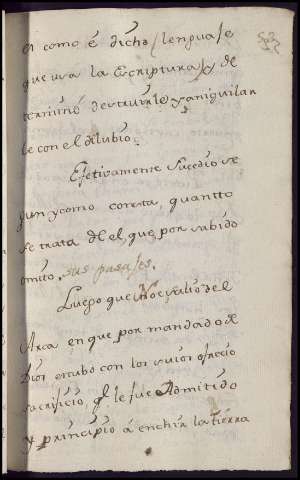 es como é dicho, lenguaje
que usa la Escriptura, y de
terminó destruirle y aniquilar
le con el dilubio.
Efetivamente sucedio se
gun y como consta, quantto
se trata del el, que por sabido
omito. sus pasajes.
Luego que Noe salio del
Arca en que por mandado de
Dios estubo con los suios ofrecio
sacrificio, q̃ le fue Admitido
y principio á enchir la tierra